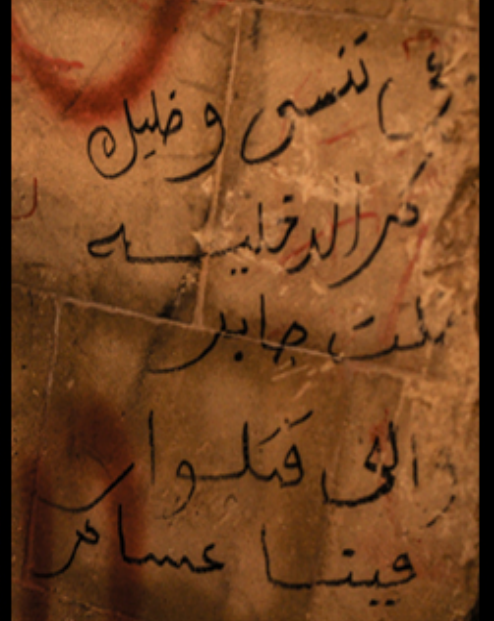 تنسى و خليك
كر الدخليـــه
جابر
والى قتلوا
مينــا عساكر